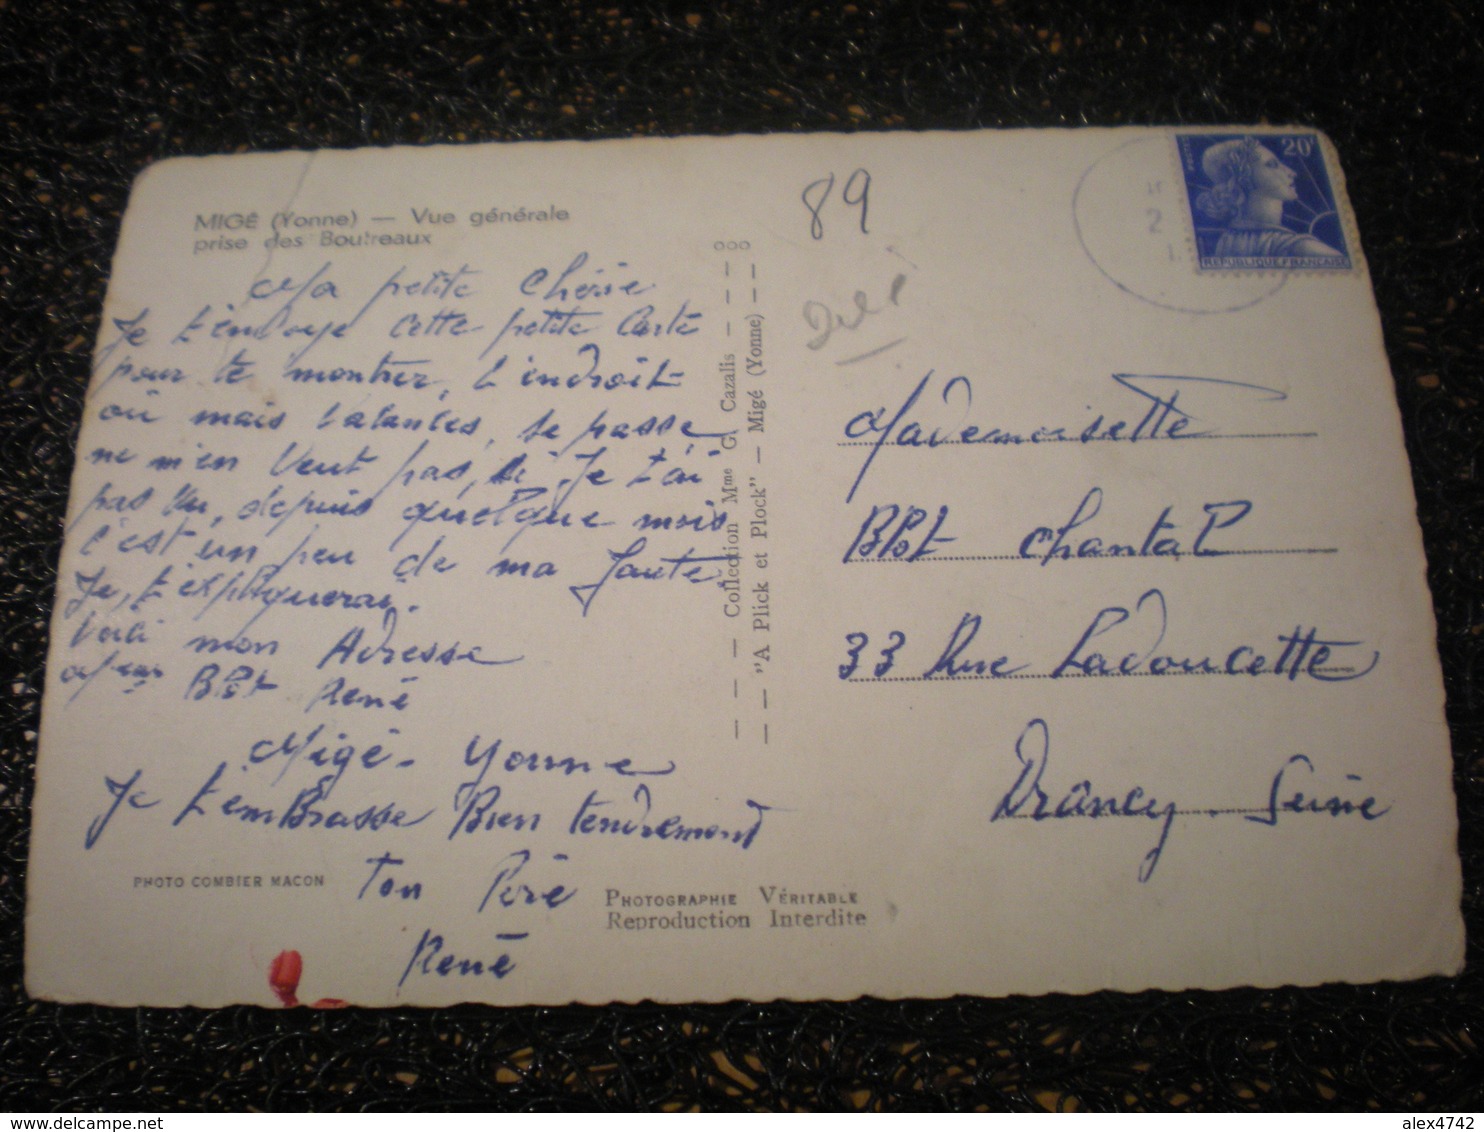 MIGÉ (Yonne) — Vue générale
prise des Boutreaux
Ma petite Chérie
Je t'envoye cette petite Carte
pour te montrer, l'endroit
où mais vacances, se passe,
ne m'en veut pas, si Je t'ai
pas vu, depuis quelque mois
C'est un peu de ma faute
Je, t'expliquerai.
Voici mon Adresse
René
Migé - Yonne
Je t'emBrasse Bien tendrement
ton Père
René
PHOTO COMBIER MACON
PHOTOGRAPHIE VÉRITABLE
Reproduction Interdite
Collection Mme G. Cazalis
"A Plick et Plock" — Migé (Yonne)
89
20F
REPUBLIQUE FRANCAISE
Mademoiselle
Chantal
33 Rue Ladoucette
Drancy. Seine
alex4742